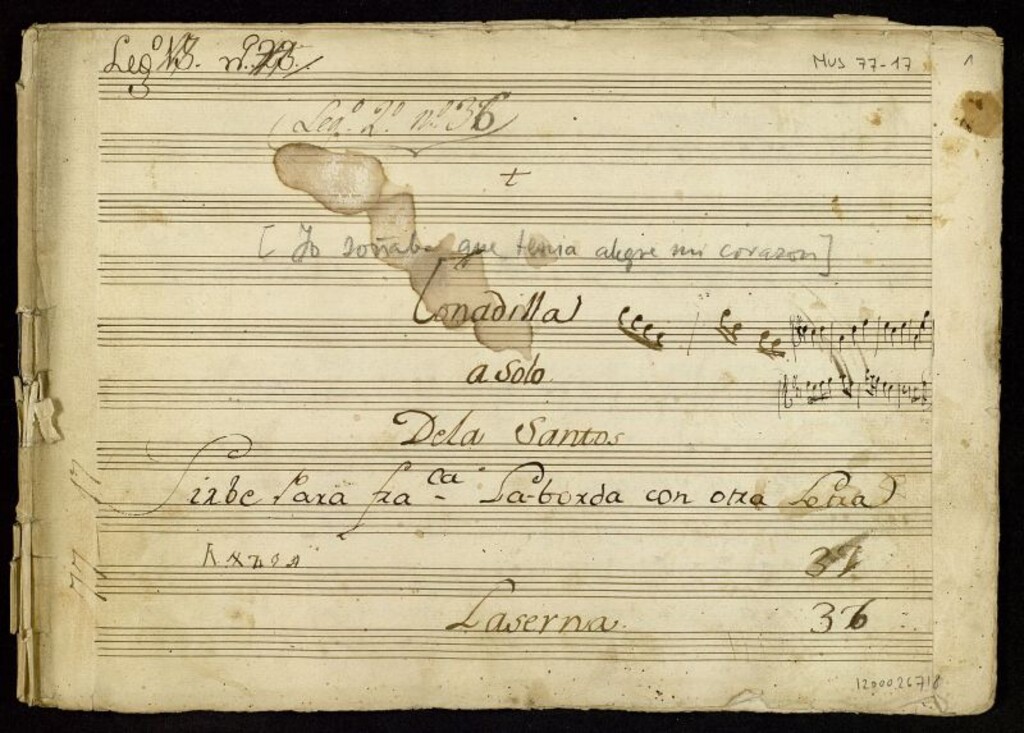 Legº 13. nº 28.
MUS 77-17
1
Legº. 2º. nº 36
t
[Yo soñaba que tenia alegre mi corazon]
Tonadilla
a Solo
De la Santos
Sirbe Para Fraca. La-borda con otra Letra
37
Laserna.
36
77 17
1200026718